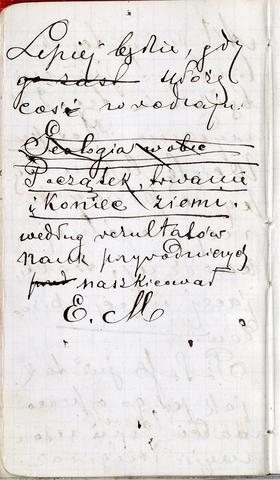 Lepiej będzie, gdy
utworzę
coś w rodzaju
Geologia wobec
Początek, trwanie
i koniec ziemi.
według rezultatów
nauk przyrodniczych
naszkicował
E. M